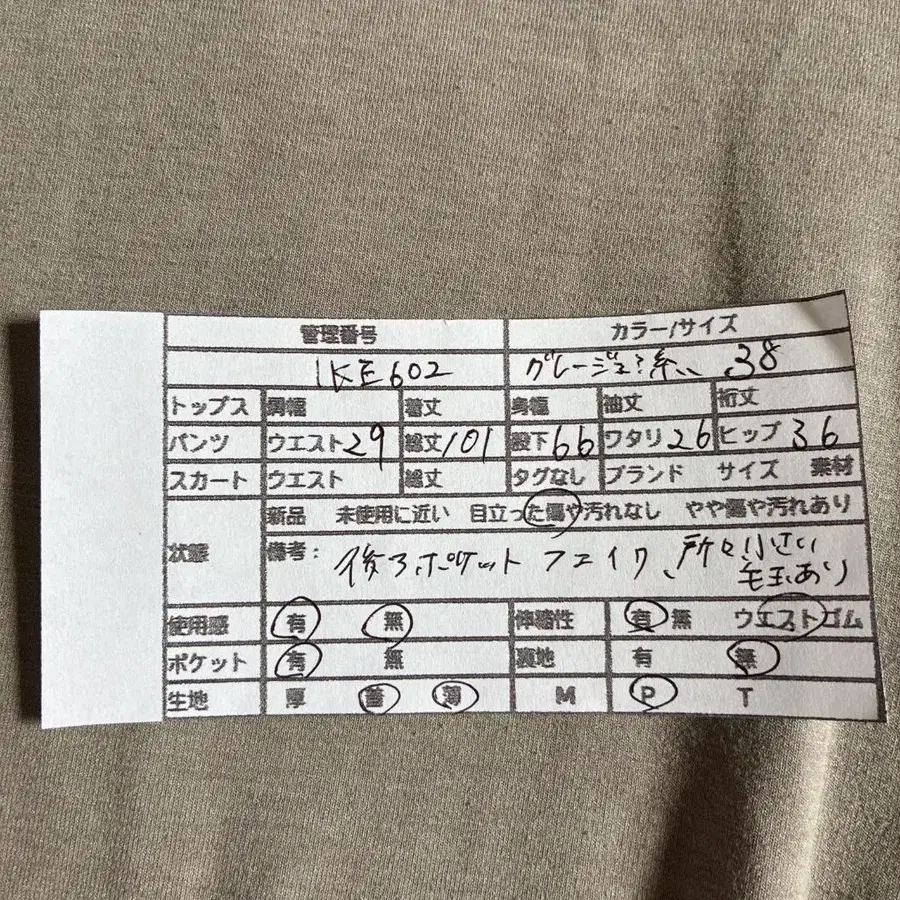 管理番号 カラー/サイズ
IKE602 グレージュ系 38
トップス 肩幅 着丈 身幅 袖丈 裄丈
パンツ ウエスト29 総丈101 股下66 ワタリ26 ヒップ36
スカート ウエスト 総丈 タグなし ブランド サイズ 素材
状態 新品 未使用に近い 目立った傷や汚れなし やや傷や汚れあり
備考: 後ろポケットフェイク、所々小さい
毛玉あり
使用感 有 無 伸縮性 有 無 ウエストゴム
ポケット 有 無 裏地 有 無
生地 厚 普 薄 M P T